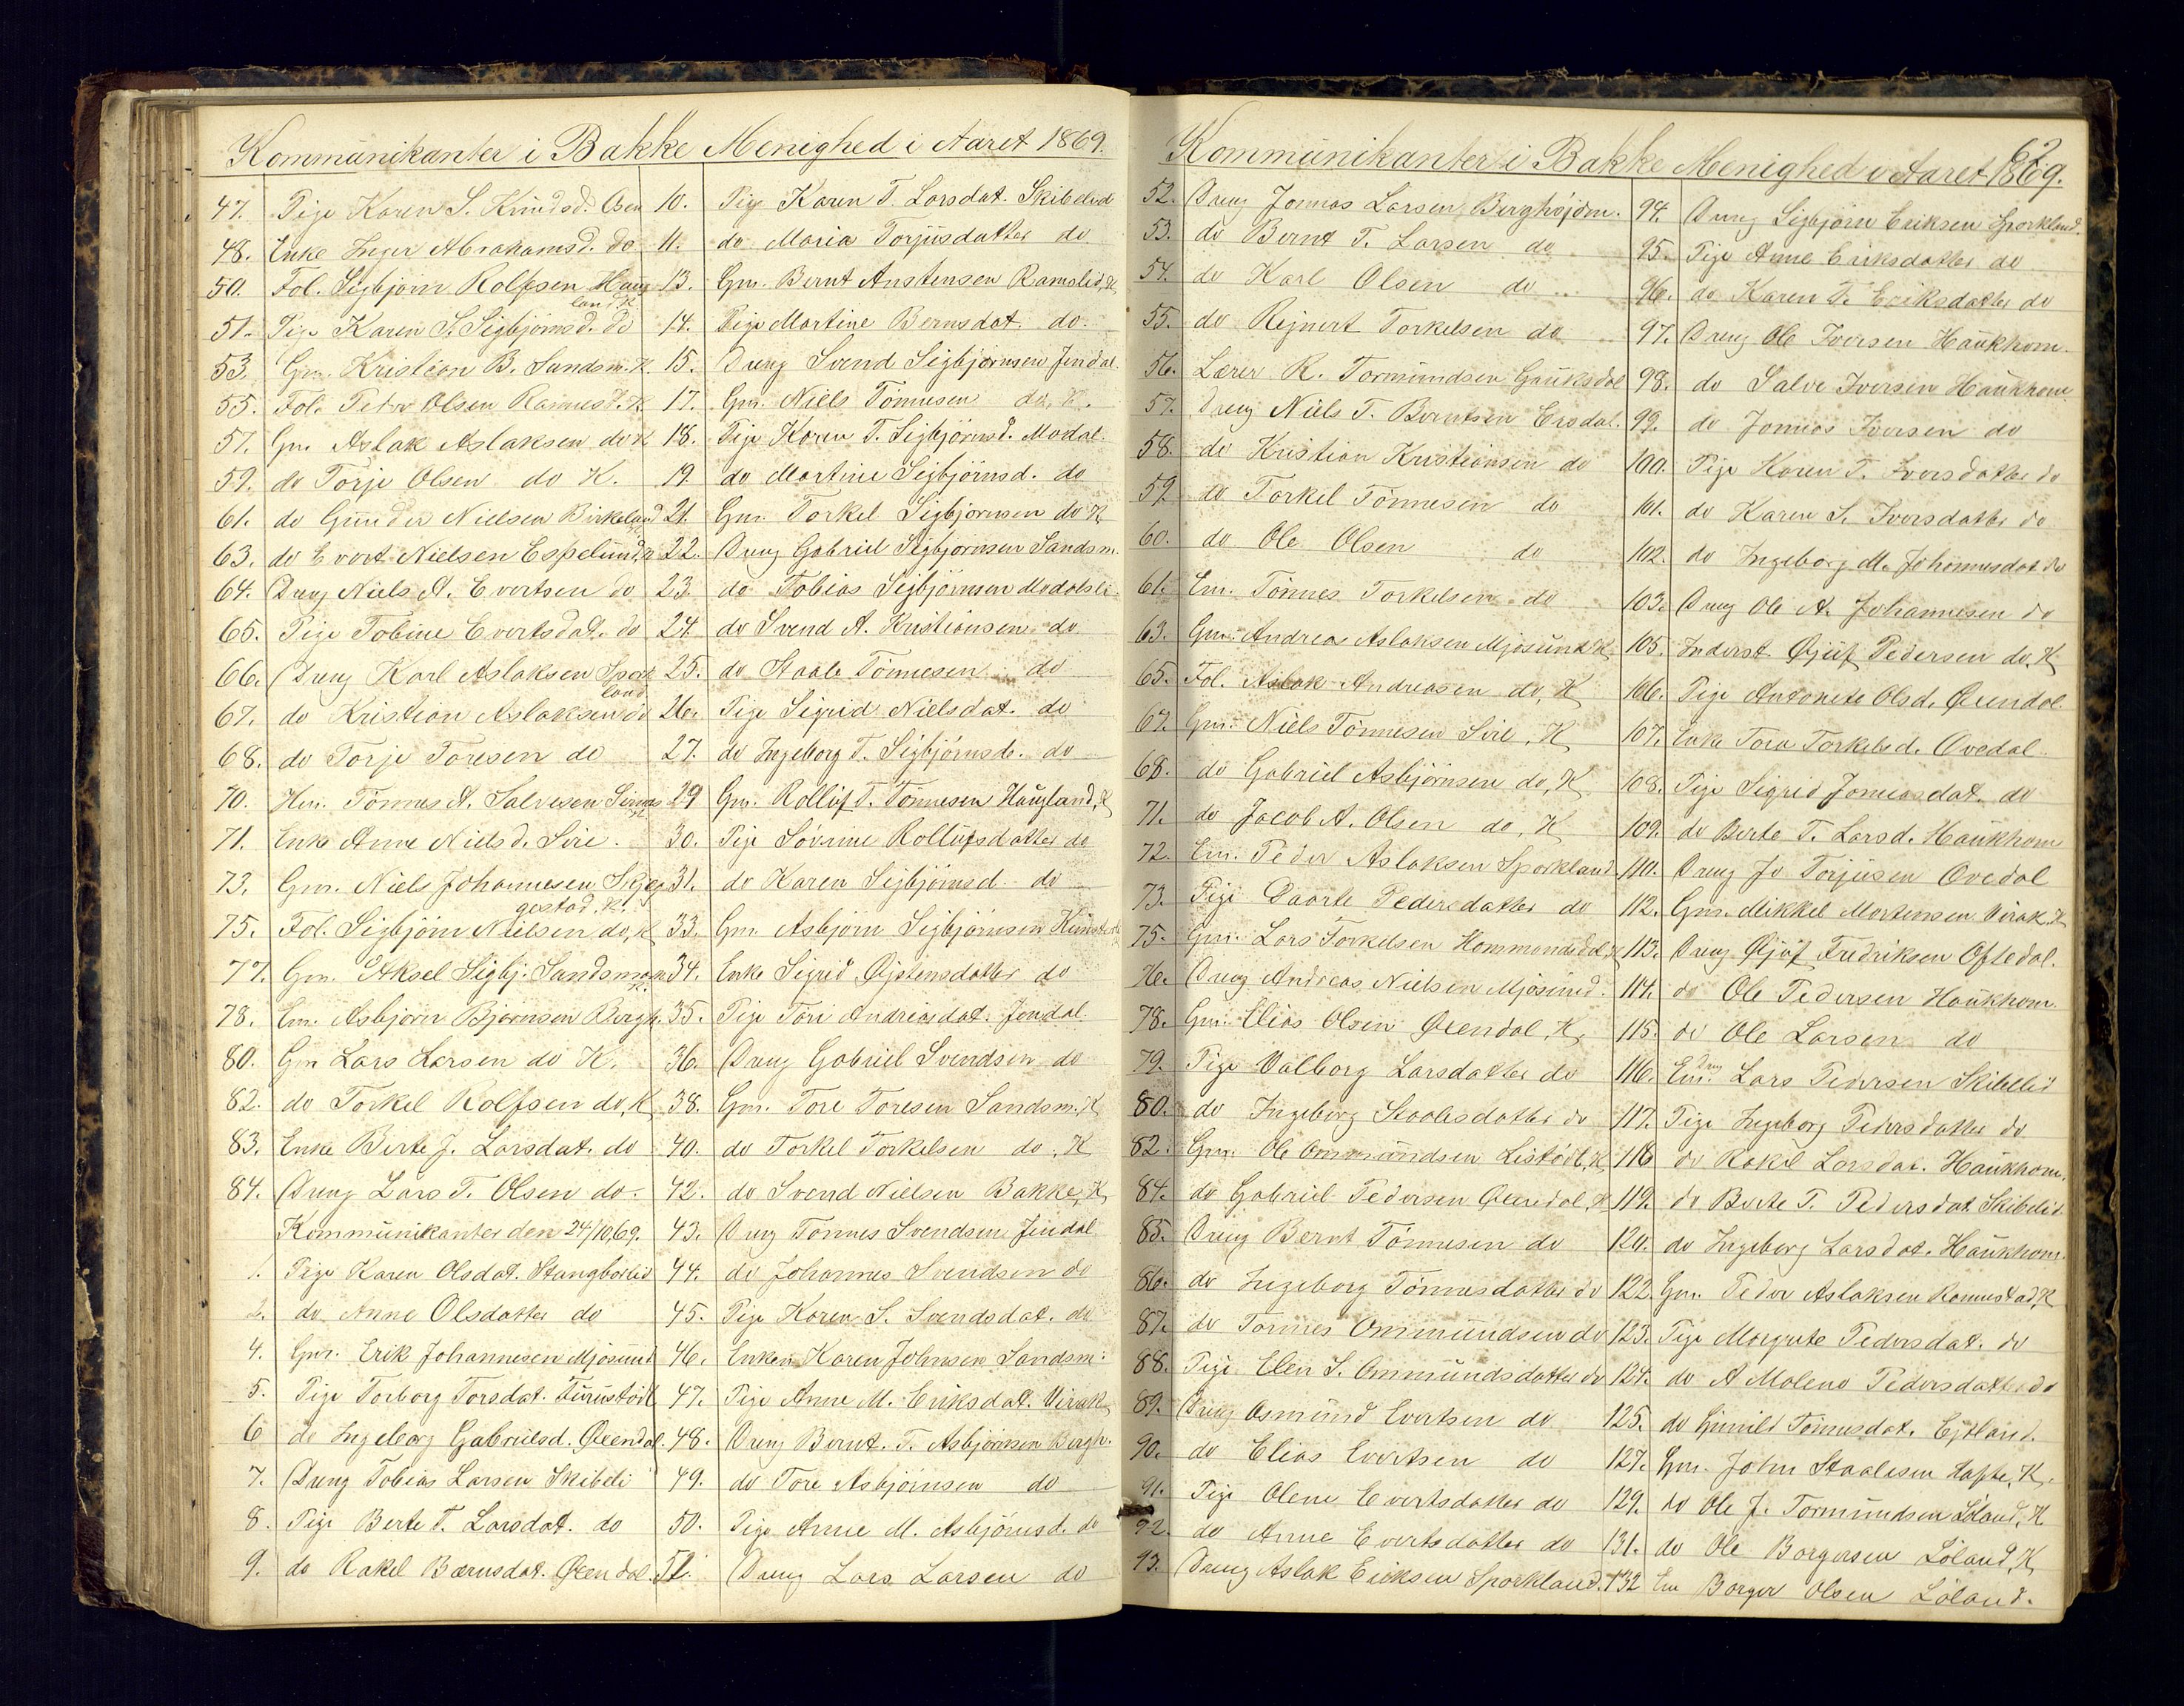 Kommünikanter i Bakke Menighed i Aaret 1869.
47. Pige Karen S. Knüdsd. Osen
48. Enke Inger Abrahamsd. do
50. Fol. Sigbjörn Rolfsen Haug
land K
51. Pige Karen S. Sigbjörnsd. do
53. Gm. Kristian B. Sandsm. K.
55. Fol. Peder Olsen Ramest. K
57. Gm. Aslak Aslaksen do K
59. do Torje Olsen do K.
61. do Gunder Nielsen Birkeland
63. do Evert Nielsen Espelünd, K
64. Dreng Niels A. Evertsen do
65. Pige Tobine Evertsdat. do
66. Dreng Karl Aslaksen Spork
land
67. do Kristian Aslaksen do
68. do Torje Toresen do
70. Hm. Tönnes A. Salvesen Sirnes
71. Enke Anne Nielsd. Sire.
73. Gm. Niels Johannesen Skjeg
gestad. K.
75. Fol. Sigbjörn Nielsen do, K
77. Gm. Aksel Sigbj. Sandsmark
K.
78. Em. Asbjörn Bjørnsen Bergh.
80. Gm Lars Larsen do K.
82. do Torkel Rolfsen do, K
83. Enke Berte J. Larsdat. do
84. Dreng Lars T. Olsen do.
Kommünikanter den 24/10,69.
1. Pige Karen Olsdat. Stangborlid
2. do Anne Olsdatter do
4. Gm. Erik Johannesen Mjösund
5. Pige Torborg Torsdat. Furustöl
6 do Ingeborg Gabrielsd. Øendal.
7. Dreng Tobias Larsen Skibeli
8. Pige Berte T. Larsdat. do
9. do Rakel Bærnsdat. Øendal.
10. Pige Karen T. Larsdat. Skibelid
11. do Maria Torjüsdatter do
13. Gm. Bernt Anstensen Ramslid, K
14. Pige Martine Bernsdat. do.
15. Dreng Svend Sigbjørnsen Jendal.
17. Gm. Niels Tönnesen do, K.
18. Pige Karen T. Sigbjörnsd. Modal.
19. do Martine Sigbjörnsd. do
21. Gm. Torkel Sigbjørnsen do K
22. Dreng Gabriel Sigbjornsen Sandsm.
23. do Tobias Sigbjörnsen Modalsli.
24. do Svend A. Kristiansen do
25. do Staale Tönnesen do
26. Pige Sigrid Nielsdat. do
27. do Ingeborg T. Sigbjörnsd. do
29 Gm. Rolluf T. Tönnesen Haügland, K
30. Pige Sörine Rollüfsdatter do
31. do Karen Sigbjörnsd. do
33. Gm. Asbjörn Sigbjörnsen
34. Enke Sigrid Øjstensdatter do
35. Pige Tore Andreasdat. Jendal.
36. Dreng Gabriel Svendsen do
38. Gm. Tore Toresen Sandsm. K
40. do Torkel Torkelsen do, K
42. do Svend Nielsen Bakke, K
43. Dreng Tönnes Svendsen Jendal
44. do Johannes Svendsen do
45. Pige Karen S. Svendsdat. do
46. Enken Karen Johnsen Sandsm.
47. Pige Anne M. Eriksdat. Virak
48. Dreng Bernt. T. Asbjörnsen Bergh.
49. do Tore Asbjörnsen do
50. Pige Anne M. Asbjörnsd. do
51. Dreng Lars Larsen do
62
Kommünikanter i Bakke Menighed i Aaret 1869.
52. Dreng Jonnas Larsen Berghöjdm.
53. do Bernt T. Larsen do
54. do Karl Olsen do
55. do Rejnert Torkelsen do
56. Lærer R. Tormündsen Gaüksdal
57. Dreng Niels T. Berntsen Ersdal.
58. do Kristian Kristiansen do
59. do Torkel Tönnesen do
60. do Ole Olsen do
61. Em. Tönnes Torkelsen do
63. Gm. Andreas Aslaksen Mjosünd K
65. Fol. Aslak Andreasen do, K
67. Gm. Niels Tönnesen Sire, K
68. do Gabriel Asbjörnsen do, K
71. do Jacob A. Olsen do, K
72. Em. Peder Aslaksen Sporkland
73. Pige Daarte Pedersdatter do
75. Gm. Lars Torkelsen Hommansdal K
76. Dreng Andreas Nielsen Mjösünd.
78. Gm. Elias Olsen Øendal, K
79. Pige Valborg Larsdatter do
80. do Ingeborg Staalesdatter do
82. Gm. Ole Ommündsen Listödl, K
84. do Gabriel Pedersen Øendal, K
85. Dreng Bernt Tönnesen do
86. do Ingeborg Tönnesdatter do
87. do Tönnes Ommündsen do
88. Pige Elen S. Ommündsdatter do
89. Dreng Osmünd Evertsen do
90. do Elias Evertsen do
91. Pige Olene Evertsdatter do
92. do Anne Evertsdatter do
93. Dreng Aslak Eriksen Sporkland.
94. Dreng Sigbjörn Eriksen Sporkland.
95. Pige Anne Eriksdatter do
96. do Karen T. Eriksdatter do
97. Dreng Ole Iversen Haükhom.
98. do Salve Iversen Haükhom
99. do Jonnas Iversen do
100. Pige Karen T. Iversdatter do
101. do Karen S. Iversdatter do
102. do Ingeborg M. Johannesdat. do
103. Dreng Ole A. Johannesen do
105. Inderst Øjüf Pedersen do, K
106. Pige Antonete Olsd. Øendal.
107. Enke Tora Torkelsd. Ovedal.
108. Pige Sigrid Jonnasdat. do
109. do Berte T. Larsd. Haükhom
110. Dreng Jo Torjüsen Ovedal
112. Gm. Mikkel Mortensen Virak, K
113. Dreng Øjüf Fredriksen Oftedal.
114. do Ole Pedersen Haükhom.
115. do Ole Larsen do
116. Em. Lars Pedersen Skibelid
117. Pige Ingeborg Pedersdatter do
118 do Rakel Larsdat. Haükhom.
119. do Berte T. Pedersdat. Skibelid.
120. do Ingeborg Larsdat. Haükhom.
122. Gm. Peder Aslaksen Ramestad, K
123. Pige Margrete Pedersdat. do
124. do A Malene Pedersdatter do
125. do Gunild Tönnesdat. Ejtland.
127. Gm. John Staalesen Hafte, K.
129. do Ole J. Tormundsen Löland, K
131. do Ole Borgersen Löland, K
132 Em Borger Olsen Löland.